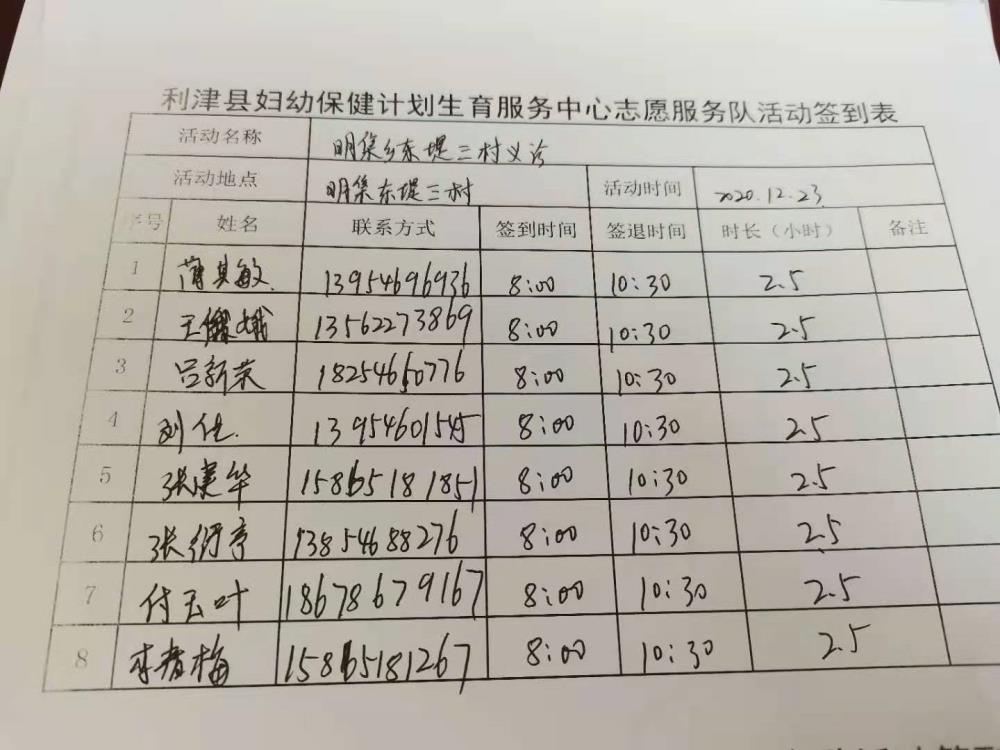 利津县妇幼保健计划生育服务中心志愿服务队活动签到表
活动名称 明集乡东堤三村义诊
活动地点 明集东堤三村 活动时间 2020.12.23
序号 姓名 联系方式 签到时间 签退时间 时长（小时） 备注
1 薄其敏 13954696936 8:00 10:30 2.5
2 王 娥 13562273869 8:00 10:30 2.5
3 吕新荣 18254660776 8:00 10:30 2.5
4 刘佳 13954601545 8:00 10:30 2.5
5 张建华 15865181851 8:00 10:30 2.5
6 张 亭 13854688276 8:00 10:30 2.5
7 付玉叶 18678679167 8:00 10:30 2.5
8 李春梅 15865181267 8:00 10:30 2.5